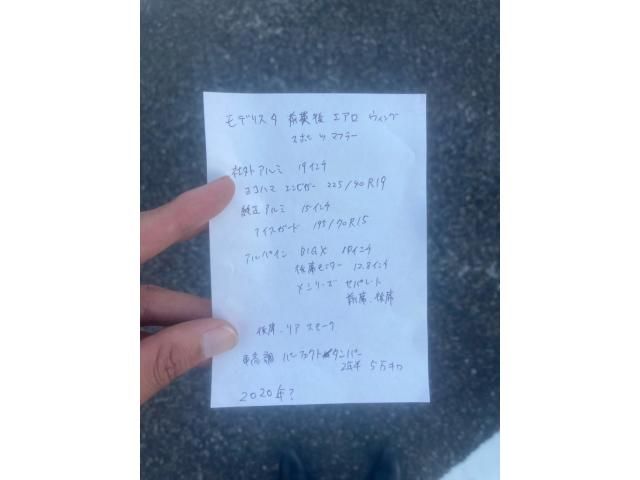 モデリスタ 前後 エアロ ウィング
スポーツ マフラー
社外アルミ 19インチ
ヨコハマ 225/40R19
純正アルミ 15インチ
アイスガード 195/70R15
アルパイン BIGX インチ
後席モニター 12.8インチ
Xシリーズ セパレート
前席、後席
後席、リア スモーク
車高調 パーフェクトダンパー
2年半 5万キロ
2020年?